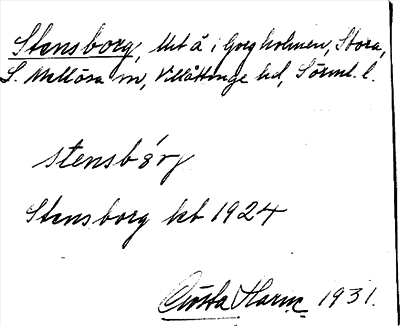 Stensborg, utä i Gorgholmen, Stora,
S. Mellösa sn, Villåttinge hd, Sörml. l.
stensbórj
Stensborg kb 1924
Gösta Harm 1931.